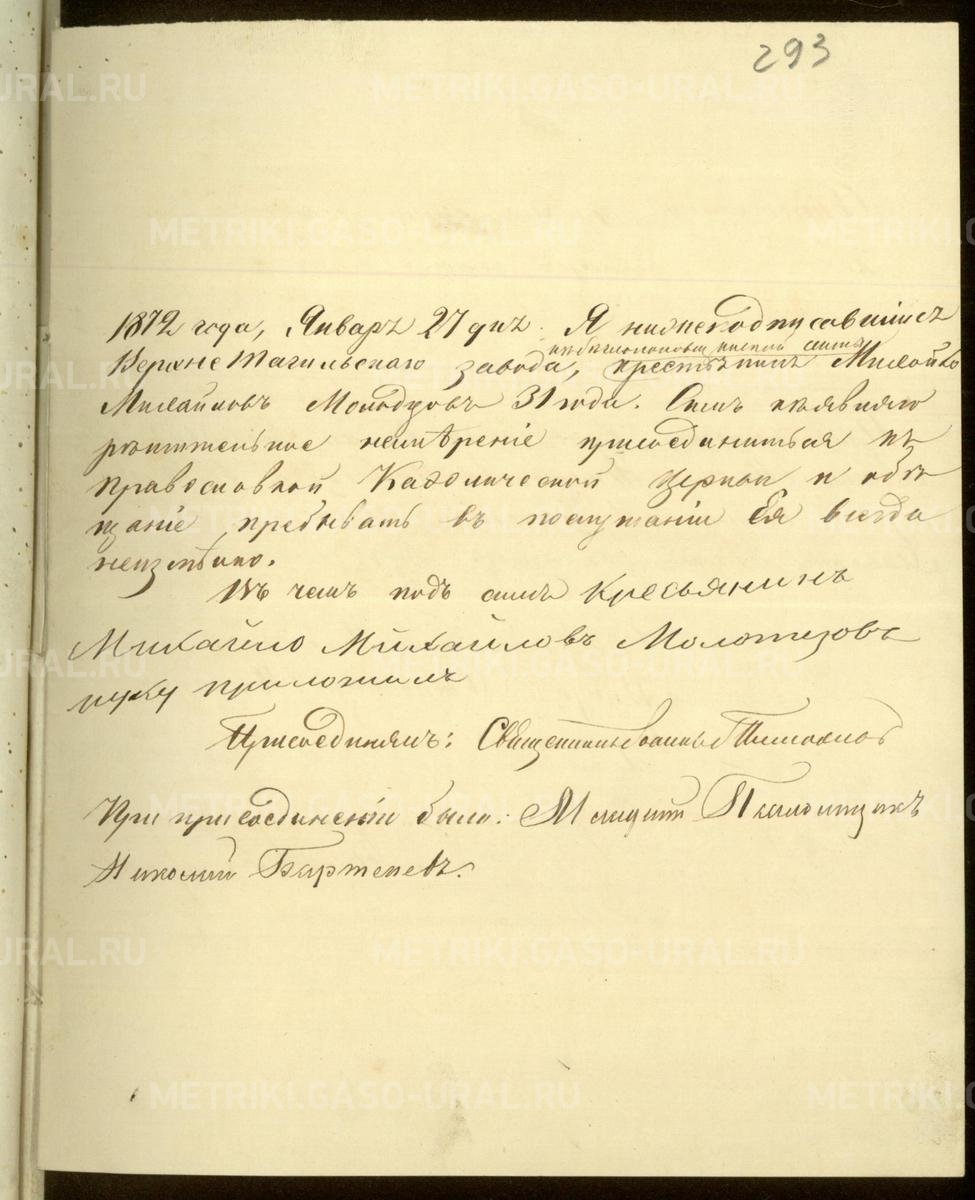 293
1872 года, Январъ 27 днъ. Я нижеподписавшiйсъ
Верхне Тагильскаго завода, крестьянинъ Михайло
Михайловъ Молодцовъ 31 года. Симъ изъявляю
рѣшительное намѣренiе присоединиться къ
православной Каѳолической церкви и обѣ
щанiе пребывать въ послушанiи Ея всегда
неизмѣнно.
Въ чемъ подъ симъ Кресьянинъ
Михайло Михайловъ Молотцовъ
руку приложилъ
Присоединялъ: Священник
При присоединенiи были:
Николай Бартеневъ.
METRIKI.GASO-URAL.RU